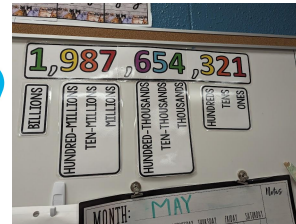 1,987,654,321
BILLIONS
HUNDRED-MILLIONS
TEN-MILLIONS
MILLIONS
HUNDRED-THOUSANDS
TEN-THOUSANDS
THOUSANDS
HUNDREDS
TENS
ONES
MONTH: MAY
Notes:
THURSDAY FRIDAY SATURDAY